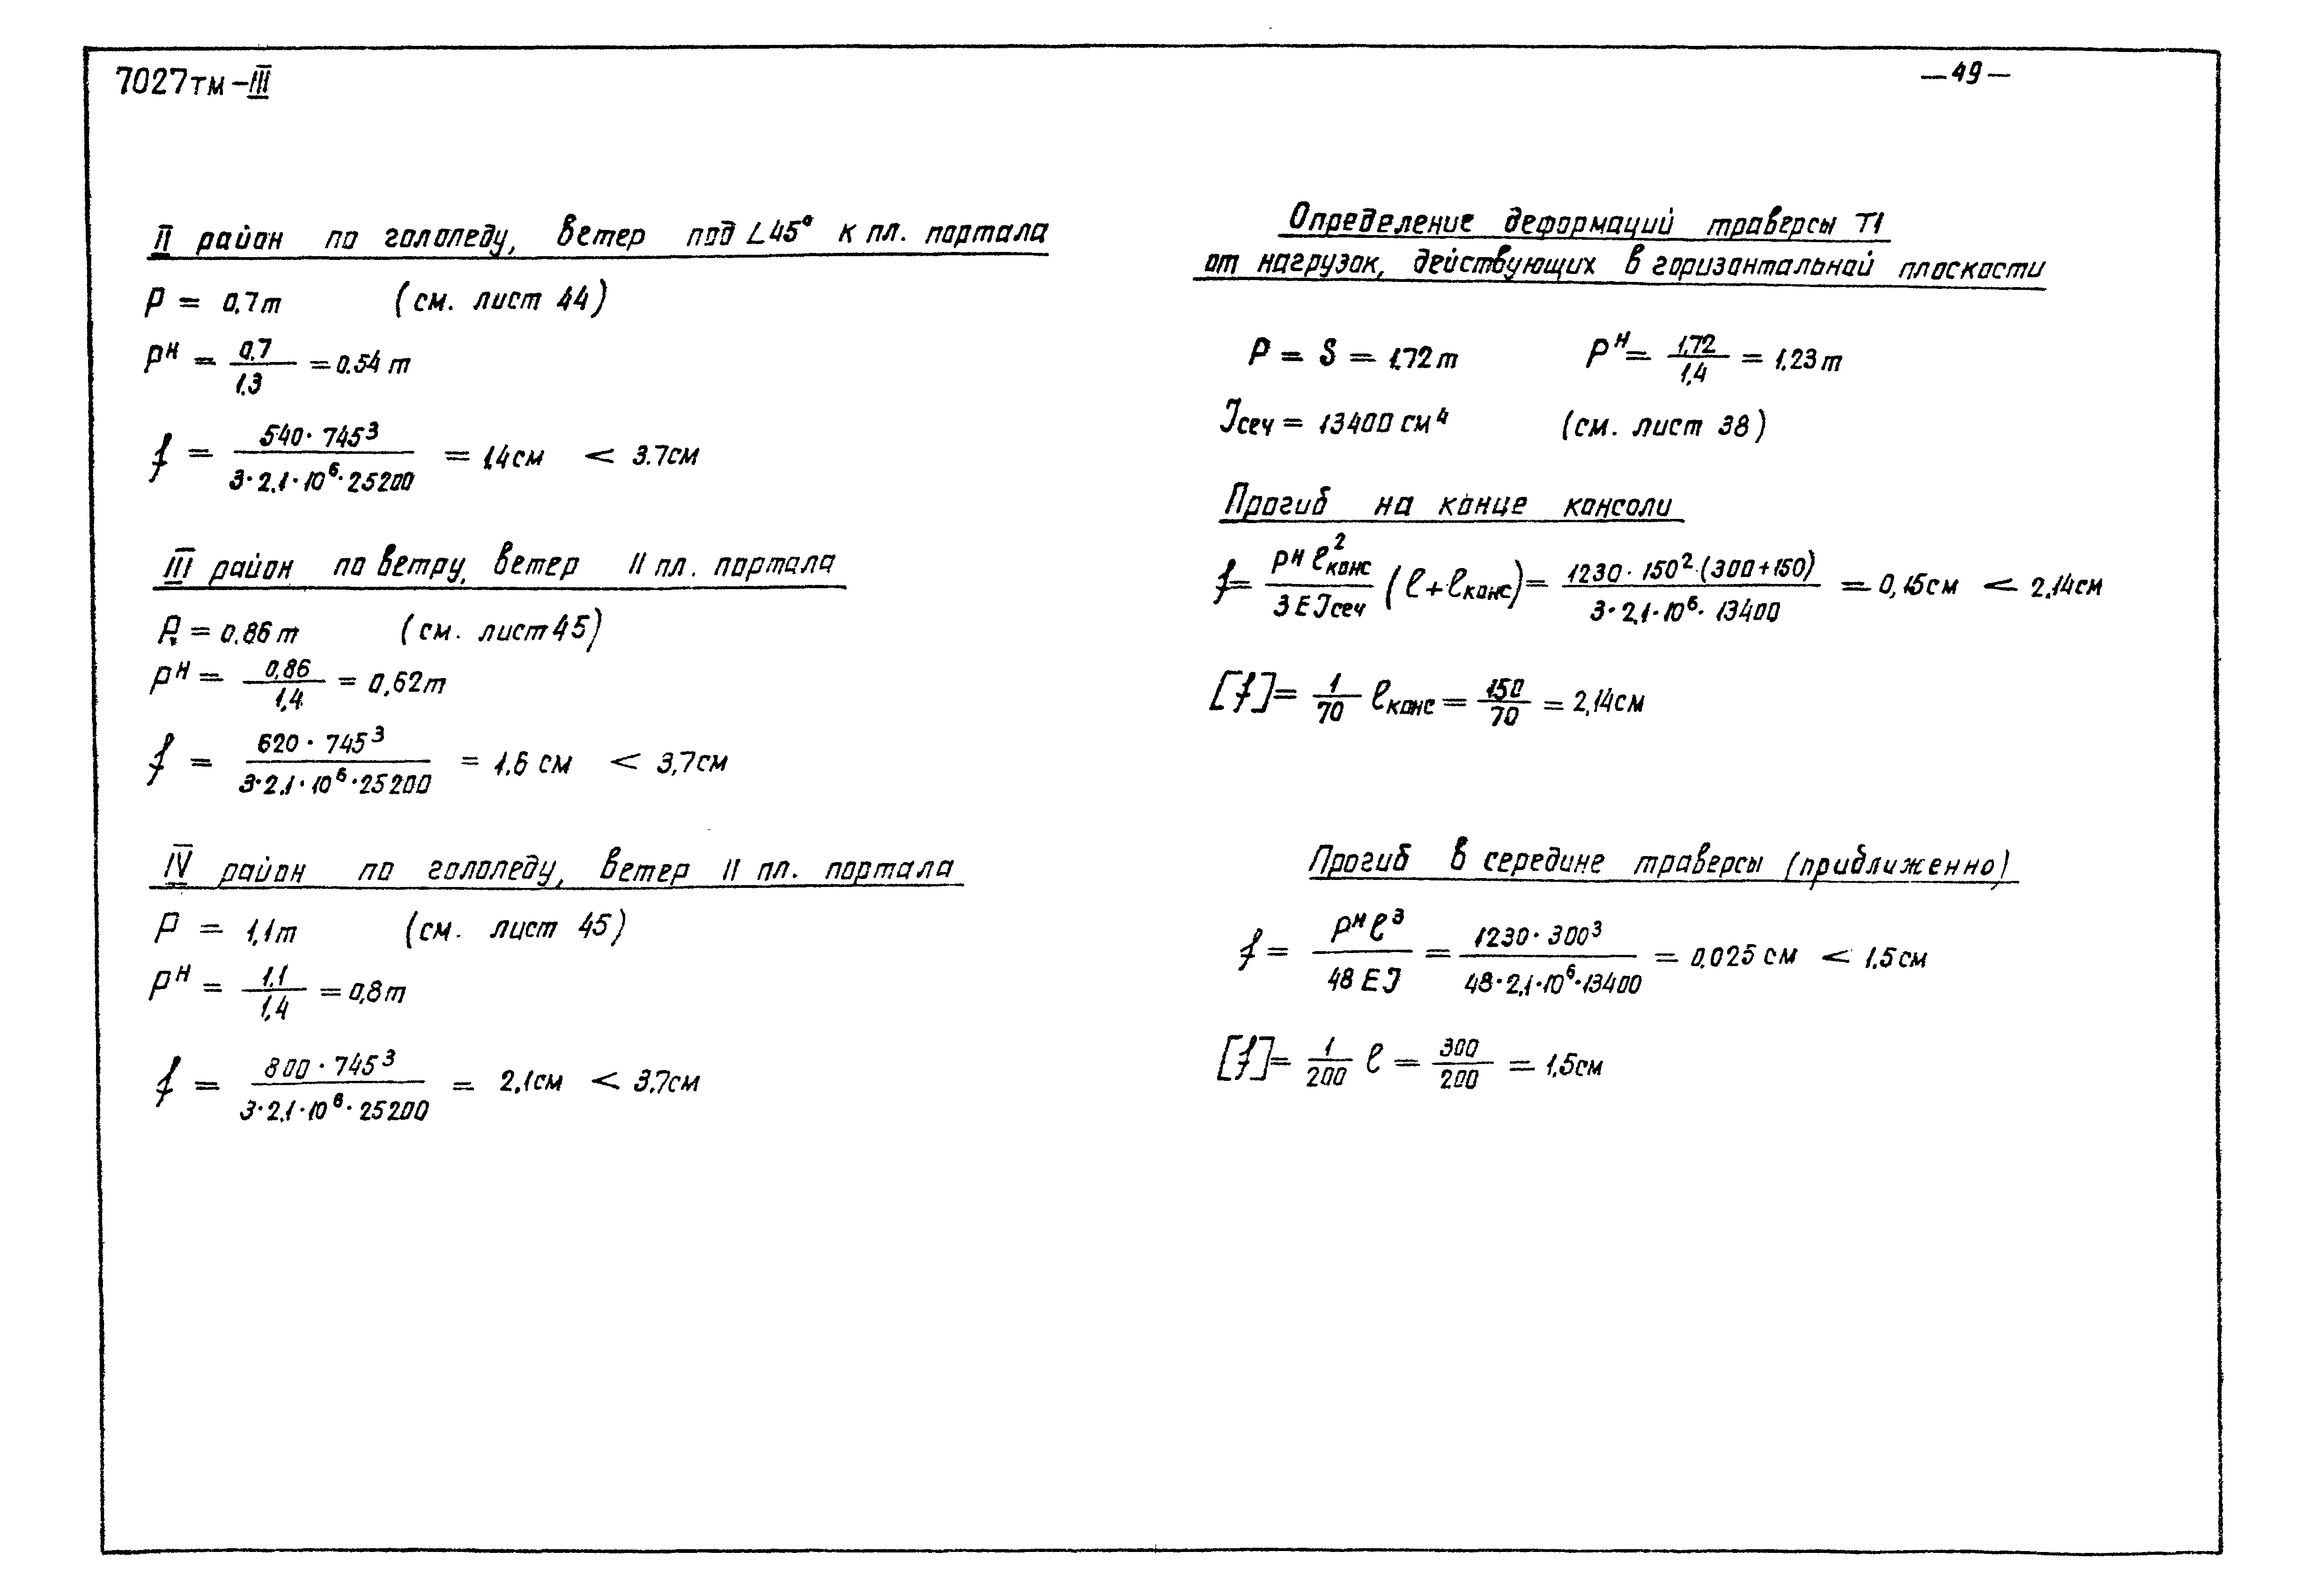 7027тм-III
-49-
II район по гололеду, ветер под ∠45° к пл. портала
P = 0.7т (см. лист 44)
Pᴴ = 0.7/1.3 = 0.54 т
f = 540·745³/3·2.1·10⁶·25200 = 1.4см < 3.7см
III район по ветру, ветер II пл. портала
P = 0.86т (см. лист 45)
Pᴴ = 0,86/1,4 = 0,62т
f = 620·745³/3·2.1·10⁶·25200 = 1.6 см < 3,7см
IV район по гололеду, ветер II пл. портала
P = 1,1т (см. лист 45)
Pᴴ = 1.1/1,4 = 0,8т
f = 800·745³/3·2.1·10⁶·25200 = 2.1см < 3.7см
Определение деформаций траверсы Т1
от нагрузок, действующих в горизонтальной плоскости
P = S = 1,72т Pᴴ = 1,72/1,4 = 1.23т
Jсеч = 13400 см⁴ (см. лист 38)
Прогиб на конце консоли
f = Pᴴ ℓ²конс/3EJсеч (ℓ+ℓконс) = 1230·150²·(300+150)/3·2,1·10⁶·13400 = 0,15см < 2.14см
[f] = 1/70 ℓконс = 150/70 = 2,14см
Прогиб в середине траверсы (приближенно)
f = Pᴴℓ³/48EJ = 1230·300³/48·2,1·10⁶·13400 = 0.025 см < 1.5см
[f] = 1/200 ℓ = 300/200 = 1,5см